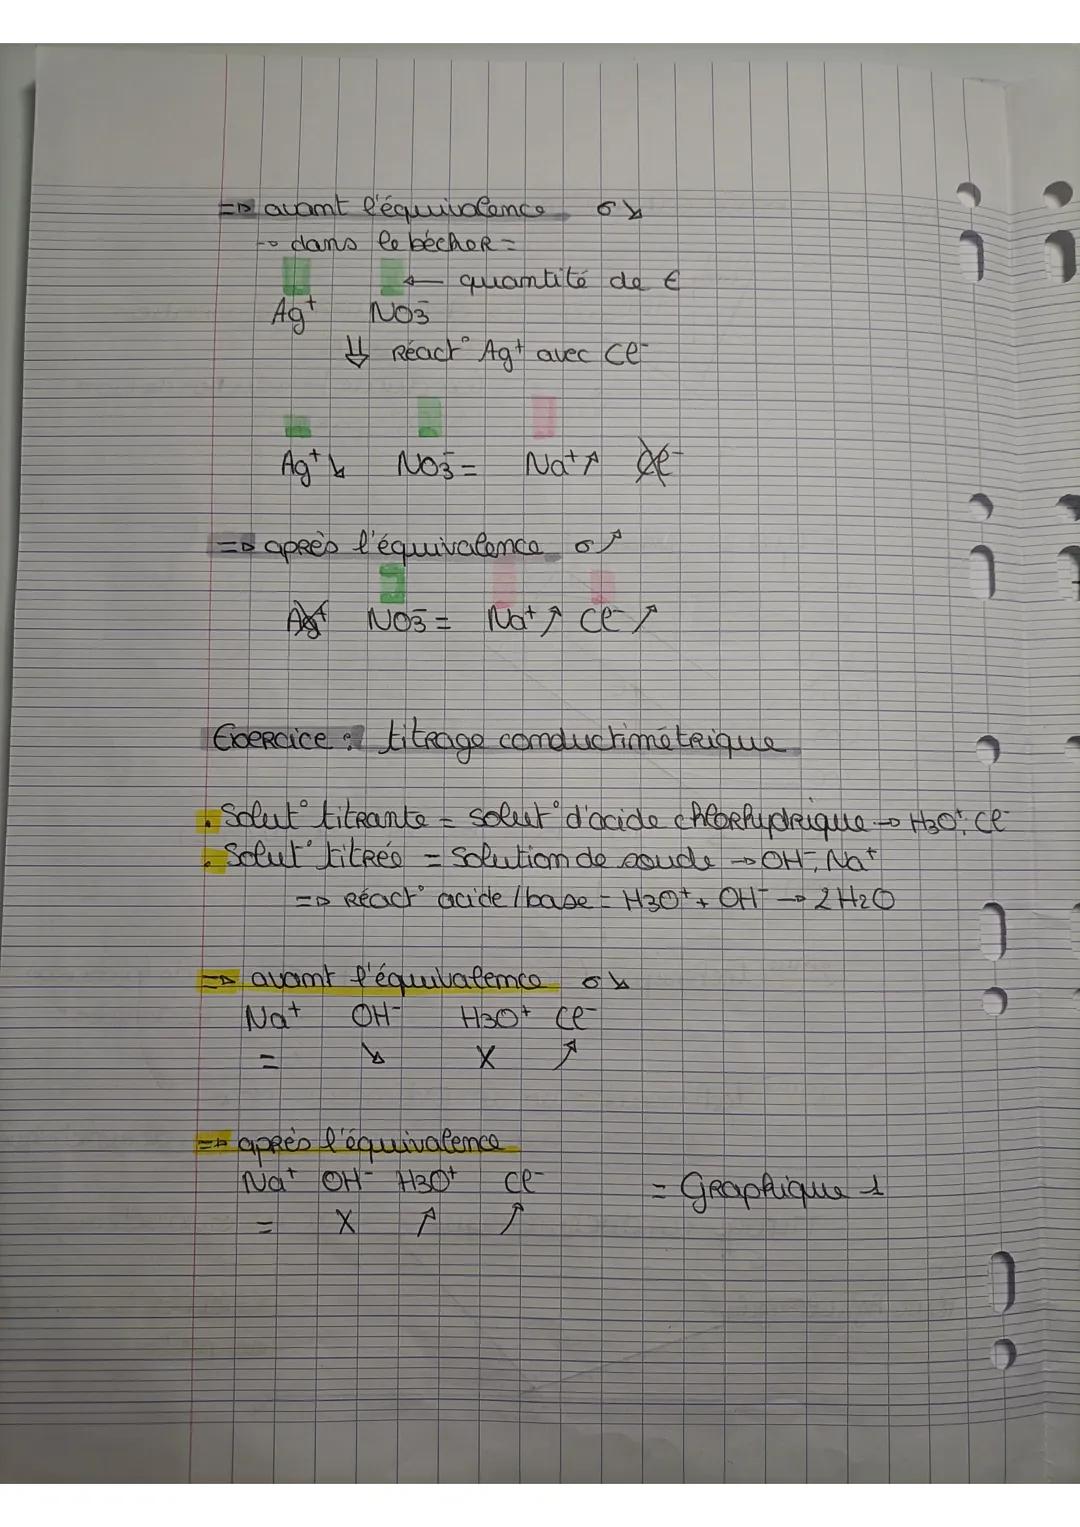 => avant l'équivalence σ↘
-> dans le bécher =
← quantité de €
Ag⁺ NO3⁻
⇓ Réact° Ag⁺ avec Cl⁻
Ag⁺↘ NO3⁻ = Na⁺↗ Cl⁻
=> après l'équivalence σ↗
Ag⁺ NO3⁻ = Na⁺↗ Cl⁻↗
Exercice : titrage conductimétrique
• Solut° titrante = solut° d'acide chlorhydrique → H3O⁺, Cl⁻
• Solut° titrée = Solution de soude → OH⁻, Na⁺
=> Réact° acide/base = H3O⁺ + OH⁻ → 2H2O
=> avant l'équivalence σ↘
Na⁺ OH⁻ H3O⁺ Cl⁻
= ↘ X ↗
=> après l'équivalence
Na⁺ OH⁻ H3O⁺ Cl⁻ = Graphique 1
= X ↗ ↗